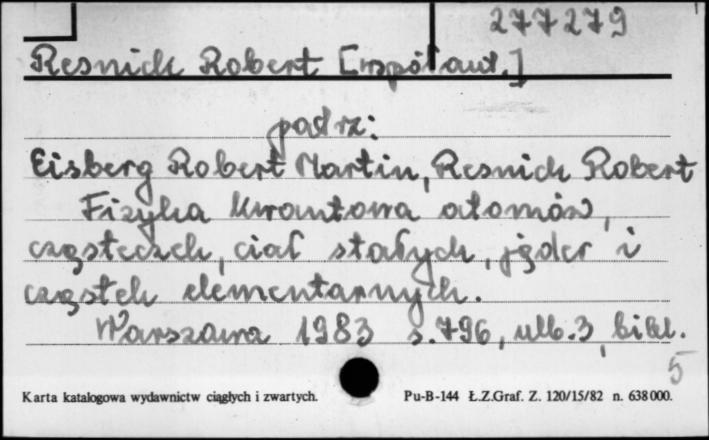 277279
Resnick Robert [współaut.]
patrz:
Eisberg Robert Martin, Resnick Robert
Fizyka kwantowa atomów,
cząsteczek, ciał stałych, jąder i
cząstek elementarnych.
Warszawa 1983 s. 796, nlb. 3, bibl.
5
Karta katalogowa wydawnictw ciągłych i zwartych. Pu-B-144 Ł.Z.Graf. Z. 120/15/82 n. 638 000.